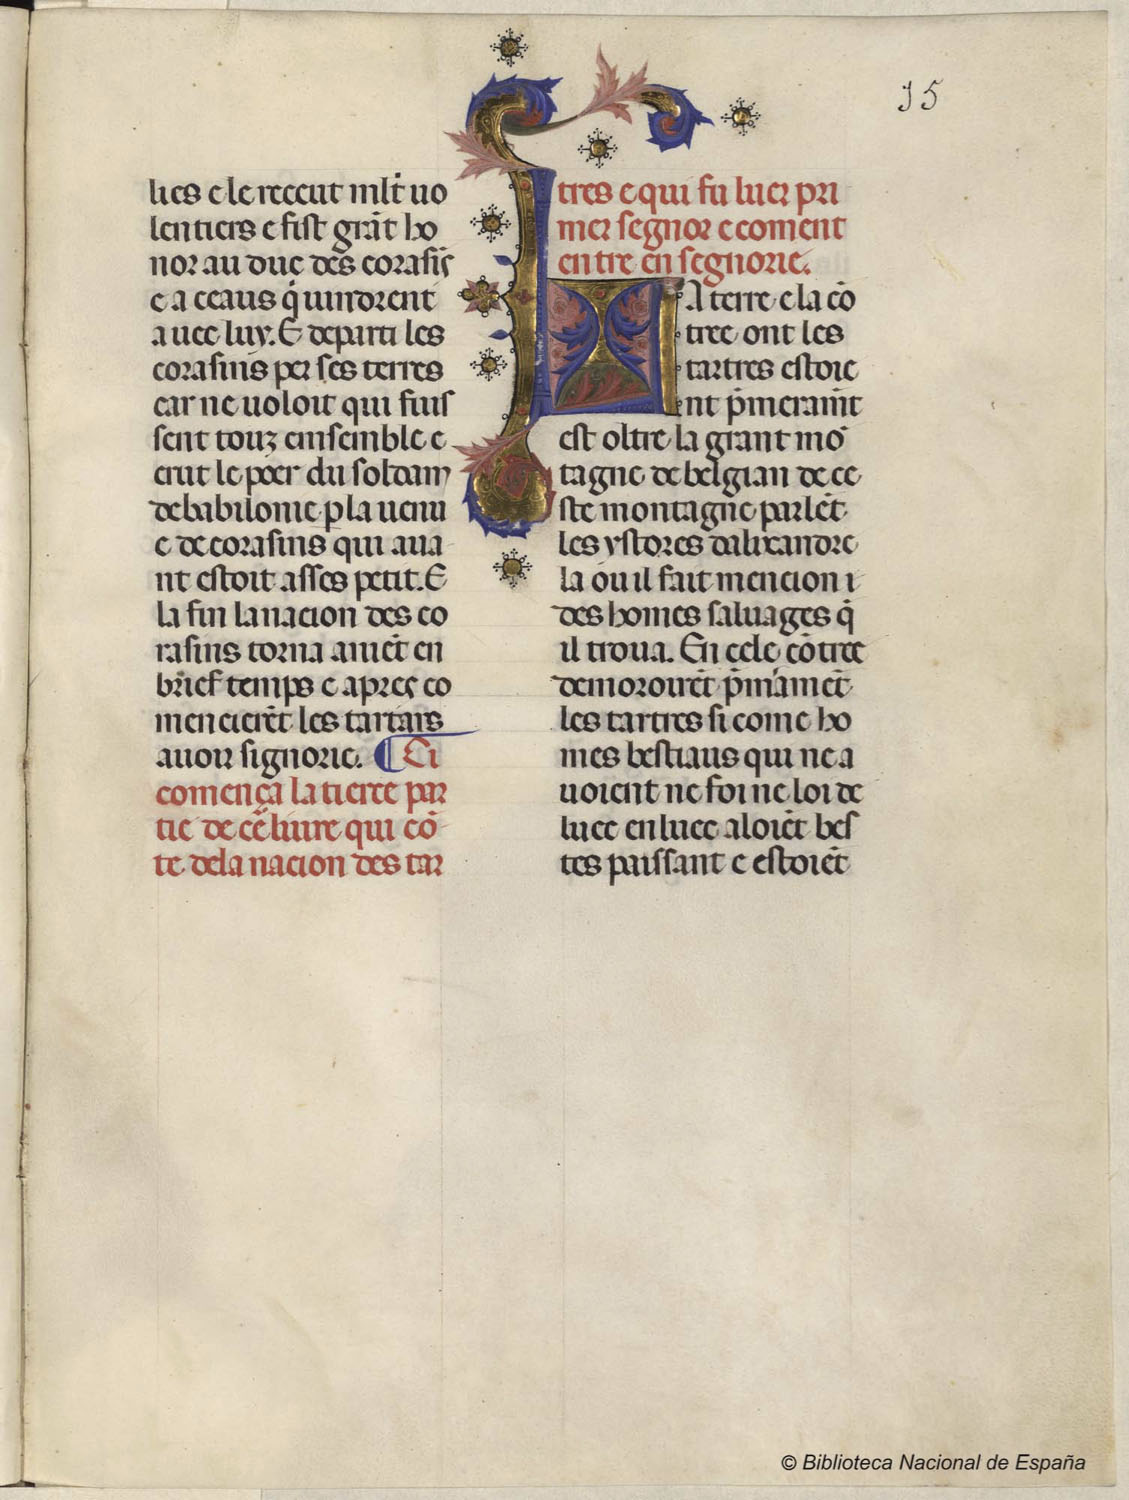 15
lies e le receut ml̃t uo
lentiers e fist grãt ho
nor au duc des corasĩs
e a ceaus q̃ uindrent
auec luy. E departi les
corasins per ses terres
car ne uoloit qui fuis
sent touz emsemble e
crut le poer du soldam
de babilonie p la uenu
e de corasins qui aua
nt estoit asses petit. E
la fin la nacion des co
rasins torna a niẽt en
brief temps e apres co
mencierẽt les tartars
auoir signorie. ¶ Ci
comença la tierce par
tie de ce liure qui cõ
te de la nacion des tar
tres e qui fu lucr pri
mer segnor e coment
entre en segnorie.
La terre e la cõ
tree ont les
tartres estoie
nt p̃meramẽt
est oltre la grant mõ
tagne de belgian de ce
ste montagne parlẽt
les ystores dalixandre
la ou il fait mencion i
des homes saluages q̃
il troua. En cele cõtree
demoroirẽt p̃miamẽt
les tartres si come ho
mes bestiaus qui ne a
uoient ne foi ne loi de
luec en luec aloiẽt bes
tes paissant e estoiẽt
© Biblioteca Nacional de España